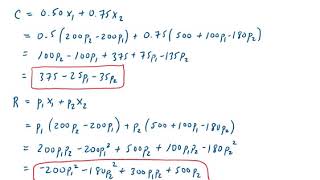 C = 0.50x₁ + 0.75x₂
= 0.5(200p₂ - 200p₁) + 0.75(500 + 100p₁ - 180p₂)
= 100p₂ - 100p₁ + 375 + 75p₁ - 135p₂
= 375 - 25p₁ - 35p₂
R = p₁x₁ + p₂x₂
= p₁(200p₂ - 200p₁) + p₂(500 + 100p₁ - 180p₂)
= 200p₁p₂ - 200p₁² + 500p₂ + 100p₁p₂ - 180p₂²
= -200p₁² - 180p₂² + 300p₁p₂ + 500p₂